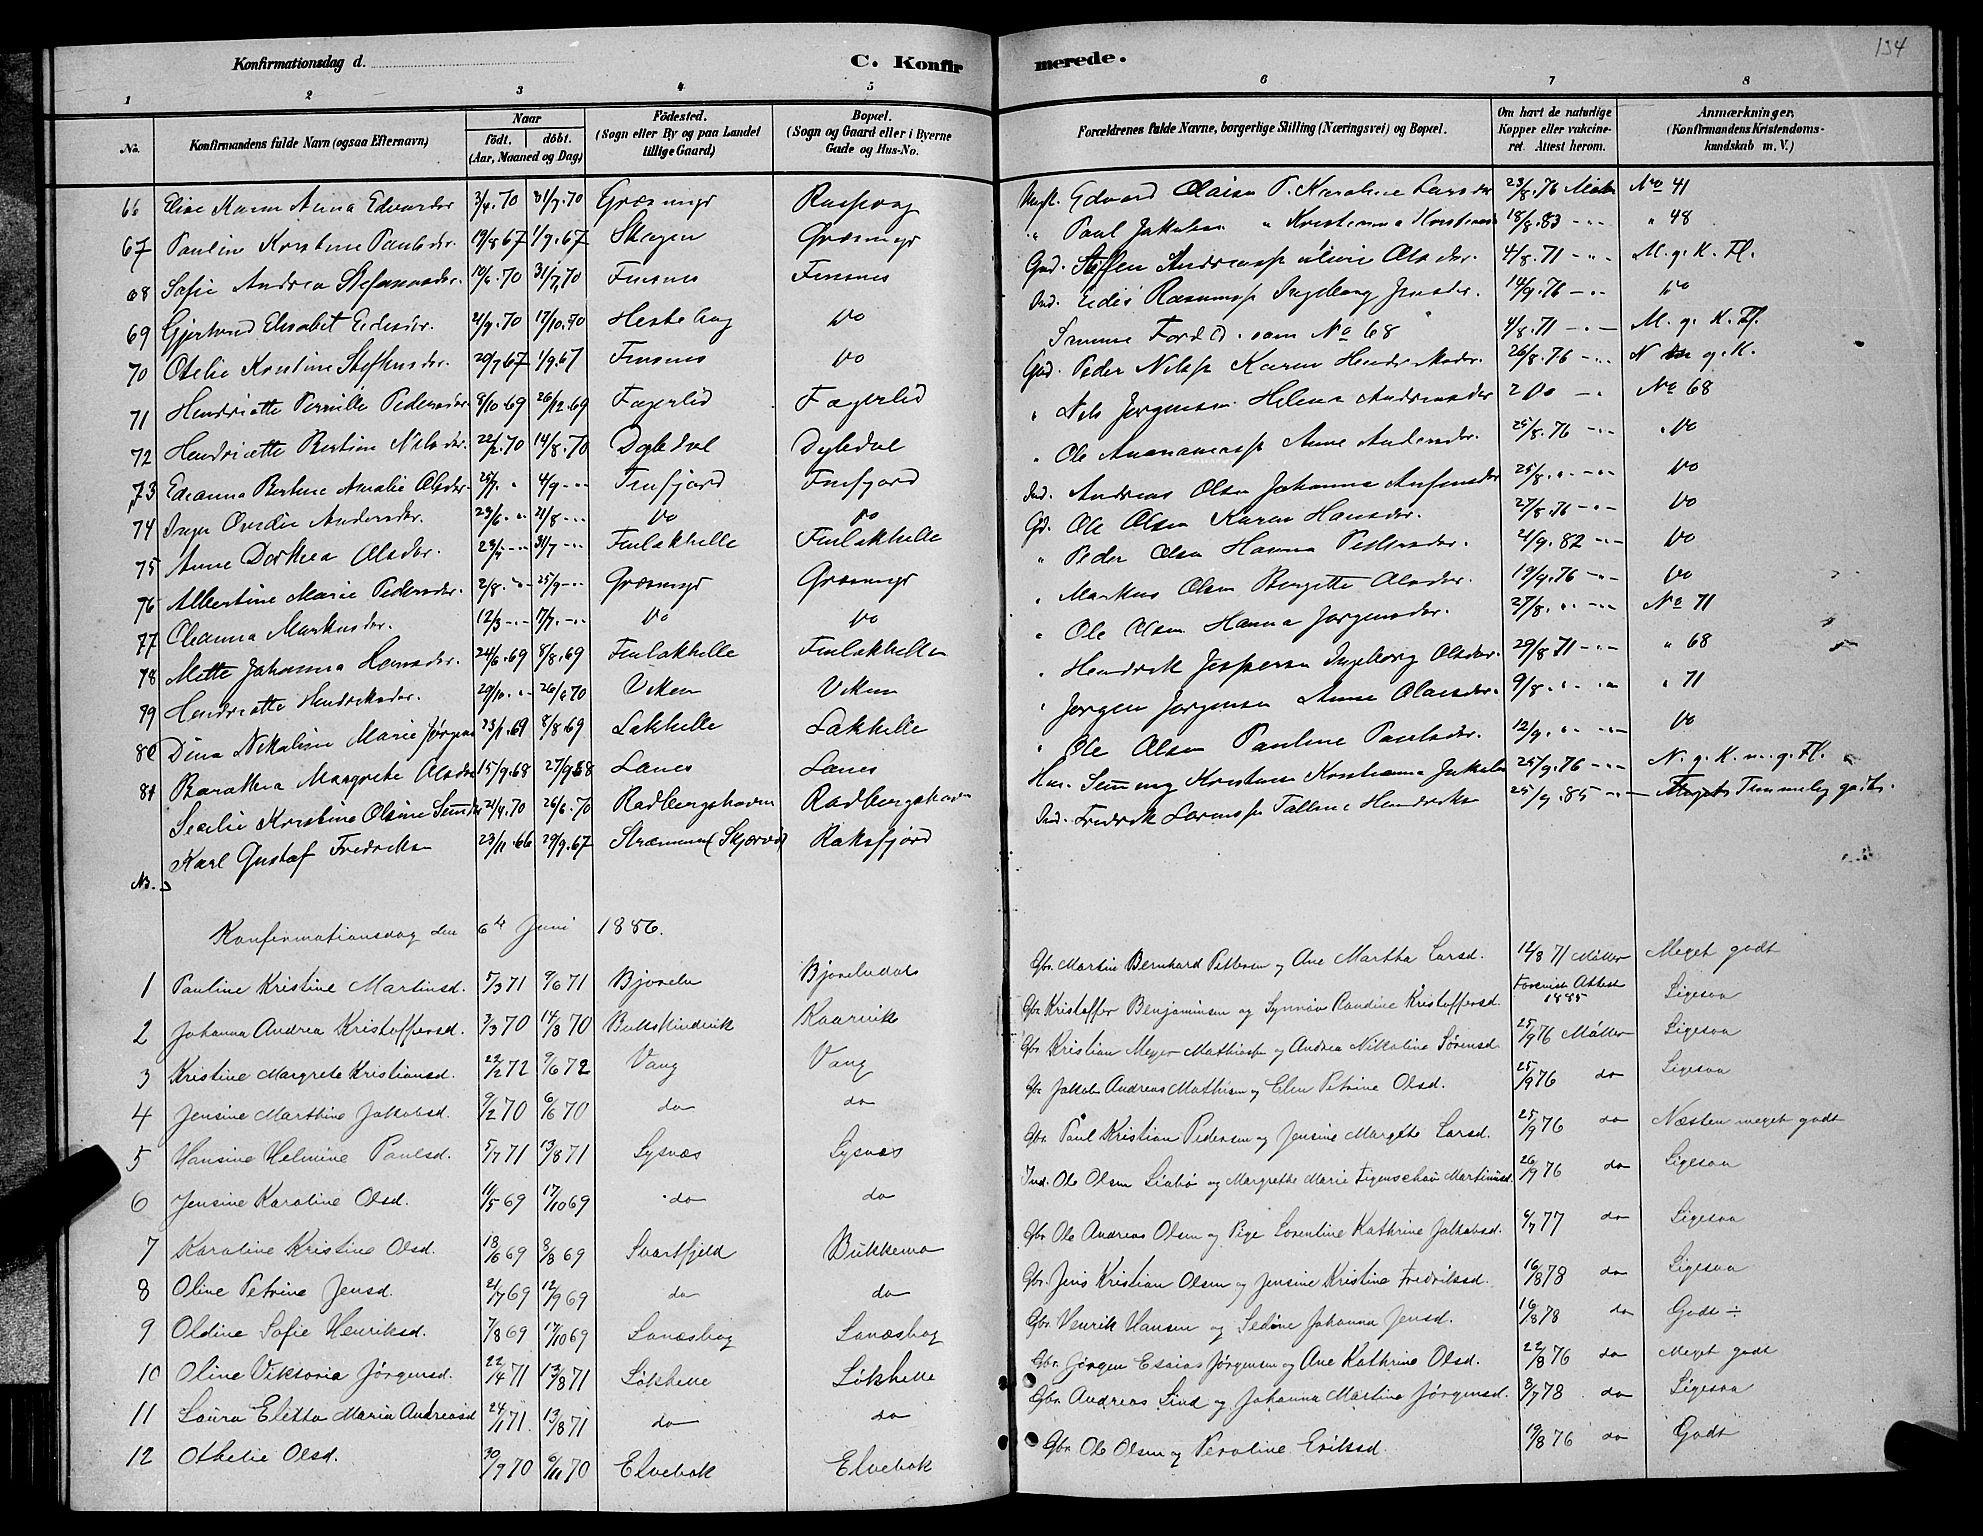 134
Konfirmationsdag d.
C. Konfirmerede.
1 2 3 4 5 6 7 8
No. Konfirmandens fulde Navn (ogsaa Efternavn) Naar födt. döbt. (Aar, Maaned og Dag) Födested. (Sogn eller By og paa Landet tillige Gaard) Bopæl. (Sogn og Gaard eller i Byerne Gade og Hus-No. Forældrenes fulde Navne, borgerlige Stilling (Næringsvei) og Bopæl. Om havt de naturlige Kopper eller vakcineret. Attest herom. Anmærkninger. (Konfirmandens Kristendomskundskab m. V.)
66 Elise Karen Anna Edvardsdr 3/4.70 31/7.70 Græsmyr No 41
67 Pauline Kristine Paulsdr. 19/8.67 1/9.67 Skogen Græsmyr Paul Jakobsen 18/8.83 " 48
68 Sofie Andrea Steffensdr. 10/6.70 31/7.70 Finsnes Finsnes Gbd. Steffen 4/8.71 M. g. K. Fl.
69 Gjertrud Elisabet 21/9.70 17/10.70 Do Ingeborg Jensdr. 14/9.76 Do
70 Otelie Kristine Steffensdr. 20/7.67 1/9.67 Finsnes Do Samme Forældr. som No 68 4/8.71 M. g. K. Fl.
71 Hendriette Pernille Pedersdr 8/10.69 26/12.69 Fagerlid Fagerlid Peder Nilsen Karen Hendriksdr. 26/8.76 N g. K.
72 Hendriette Bertine Nilsdr. 22/2.70 14/8.70 Nils Jørgensen Helena Andreasdr No 68
73 Amalie Olsdr 25/7 4/9 Finfjord Finfjord Ole Anne Andersdr. 25/8.76 Do
74 Andersdr. 23/6 21/8 Do Do Andreas Olsen Johanna 25/8 Do
75 Anne Dorthea Olsdr. 31/7 Finlakhelle Finlakhelle Ole Olsen Karen Hansdr. 27/8.76 Do
76 Albertine Marie Pedersdr. 2/8 25/9 Græsmyr Græsmyr Peder Olsen Hanna Pedersdr. 21/9.82 Do
77 Oleanna Markusdr. 12/3 17/7 Do Do Markus Olsen Bergitte Olsdr. 19/9.76 Do
78 Mette Johanna 24/6.69 8/8.69 Finlakhelle Finlakhelle Ole Olsen Hanna Jørgensdr. 27/8 No 71
79 Hendriette Hendriksdr. 29/10 26/6.70 Viken Viken Hendrik Jespersen Ingeborg Olsdr. 29/8.71 " 68
80 Dina Nikoline Marie Jørgens 23/1.69 8/8.69 Lakhelle Lakhelle Jørgen Jørgensen Anne 9/8 " 71
81 Margrete Olsdr 15/9.68 27/9.68 Lanes Lanes Ole Olsen Pauline Paulsdr. 12/9 Do
Secilie Kristine Oline 21/4.70 26/6.70 Rødbergshavn Rødbergshavn 25/9.76 N. g. K. m. g. Fl.
No. Karl Gustaf Fredriksen 23/11.66 29/9.67 Raksfjord Fredrik 25/9.85 Temmelig godt.
Konfirmationsdag den 6te Juni 1886.
1 Pauline Kristine Martinsd. 5/3 71 9/6 71 Bjorelv Bjorelvdal Gbr. Martin Bernhard Pettersen og Ane Martha Larsd. 12/8 71 Møller Meget godt
2 Johanna Andrea Kristoffersd. 3/3 70 14/8 70 Kaarvik Gbr. Kristoffer Benjaminsen og Synnøve Pauline Kristoffersd. Forevist Attest 1885 Ligesaa
3 Kristine Margrete Kristiansd. 22/2 72 9/6 72 Vang Vang Gbr. Kristian Meyer Mathiasen og Andrea Nikoline Sørensd. 25/9 76 Møller Ligesaa
4 Jensine Marthine Jakobsd. 9/2 70 6/6 70 do do Gbr. Jakob Andreas Mathisen og Elen Petrine Olsd. 25/9 76 do Ligesaa
5 Hansine Helmine Paulsd. 5/7 71 13/8 71 Lysnæs Lysnæs Gbr. Paul Kristian Pedersen og Jensine Margrethe Larsd. 25/9 76 do Næsten meget godt
6 Jensine Karoline Olsd. 11/5 69 17/10 69 do do Ind. Ole Olsen Liabø og Margrethe Marie Figenschau Martinusd. 26/9 76 do Ligesaa
7 Karoline Kristine Olsd. 18/6 69 8/8 69 Svartfjeld Bukkemo Gbr. Ole Andreas Olsen og Pige Lorentine Kathrine Jakobsd. 6/7 77 do Ligesaa
8 Oline Petrine Jensd. 21/7 69 12/9 69 do do Gbr. Jens Kristian Olsen og Jensine Kristine Fredriksd. 16/8 78 do Ligesaa
9 Oldine Sofie Henriksd. 7/8 69 17/10 69 Lanæsbog Lanæsbog Gbr. Henrik Hansen og Sedine Johanna Jensd. 16/8 78 do Godt ÷
10 Oline Viktoria Jørgensd. 22/4 71 13/8 71 Løkhelle Løkhelle Gbr. Jørgen Esaias Jørgensen og Ane Kathrine Olsd. 22/8 76 do Meget godt
11 Laura Elitta Maria Andreasd 24/1 71. 13/8 71 do do Gbr. Andreas Lind og Johanna Martine Jørgensd. 3/7 78 do Ligesaa
12 Othelie Olsd. 30/9 70 6/11 70 Elvebak Elvebak Gbr. Ole Olsen og Peroline Eriksd. 19/8 76 do Godt